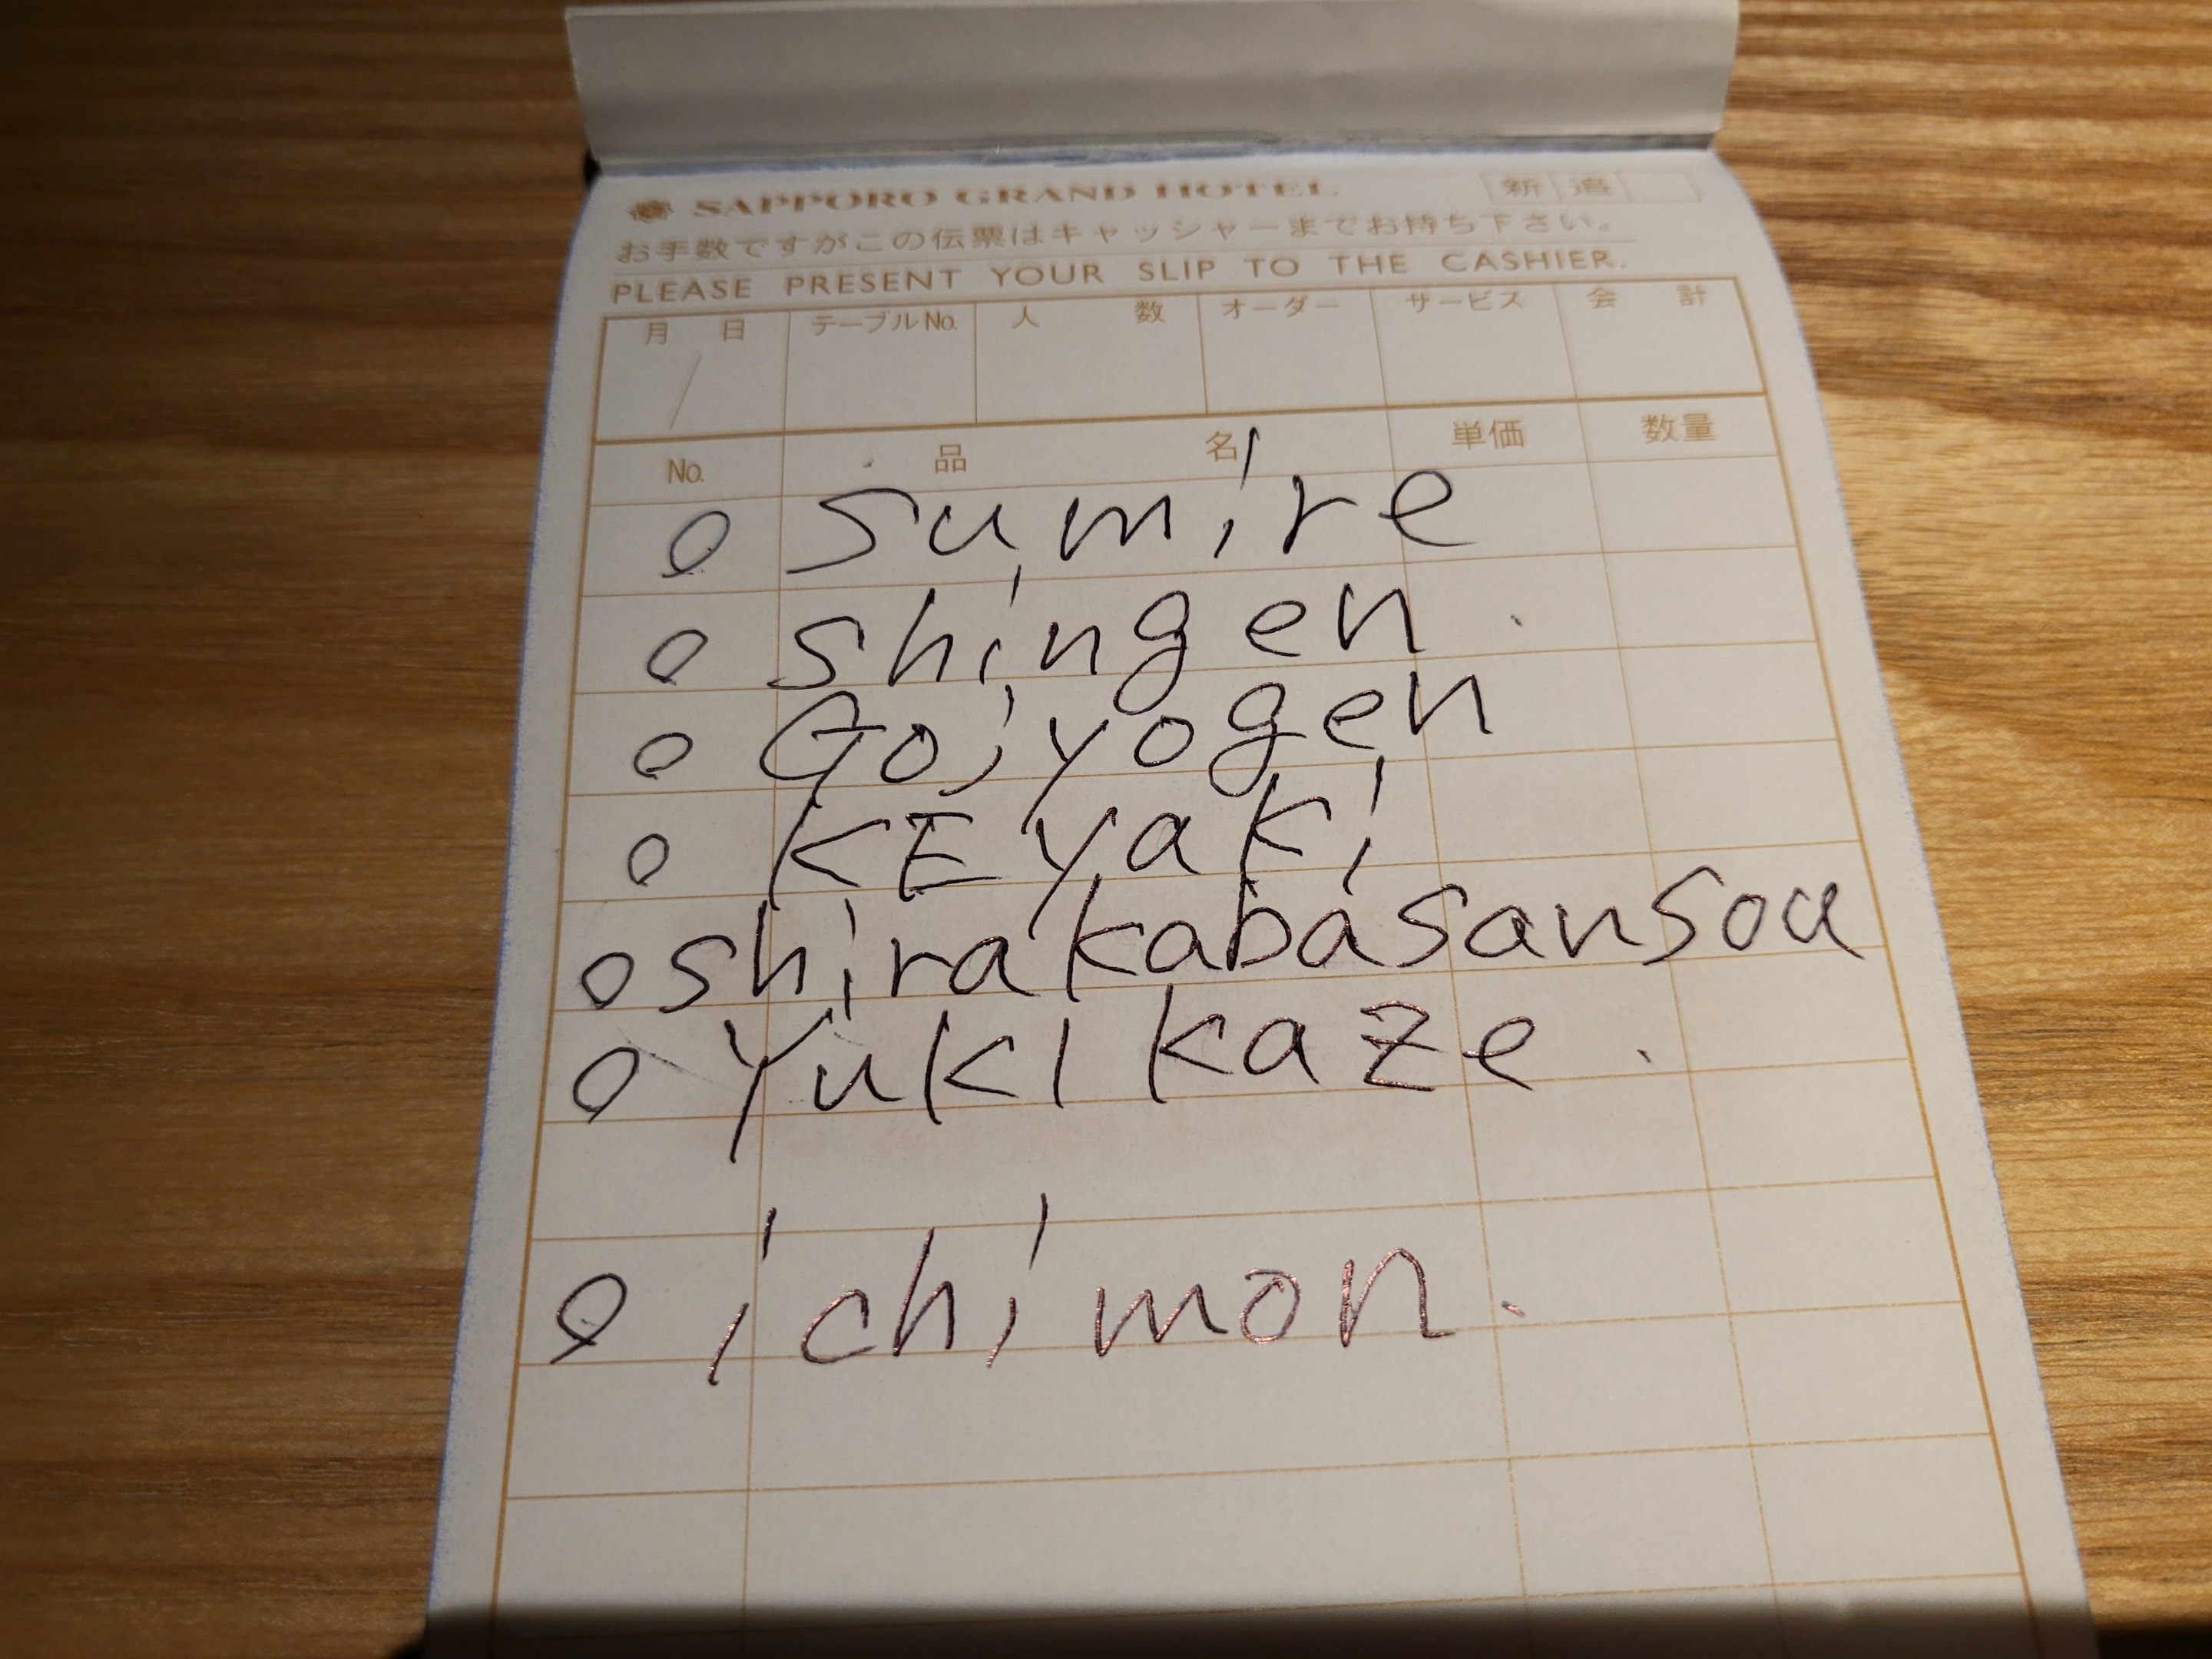 SAPPORO GRAND HOTEL 新 追
お手数ですがこの伝票はキャッシャーまでお持ち下さい。
PLEASE PRESENT YOUR SLIP TO THE CASHIER.
月 日 テーブルNo. 人 数 オーダー サービス 会 計
/
No. 品 名 単価 数量
o sumire
o shingen.
o Gojyogen
o KEyaki
o shirakabasansou
o YuKI kaze.
o ichimon.